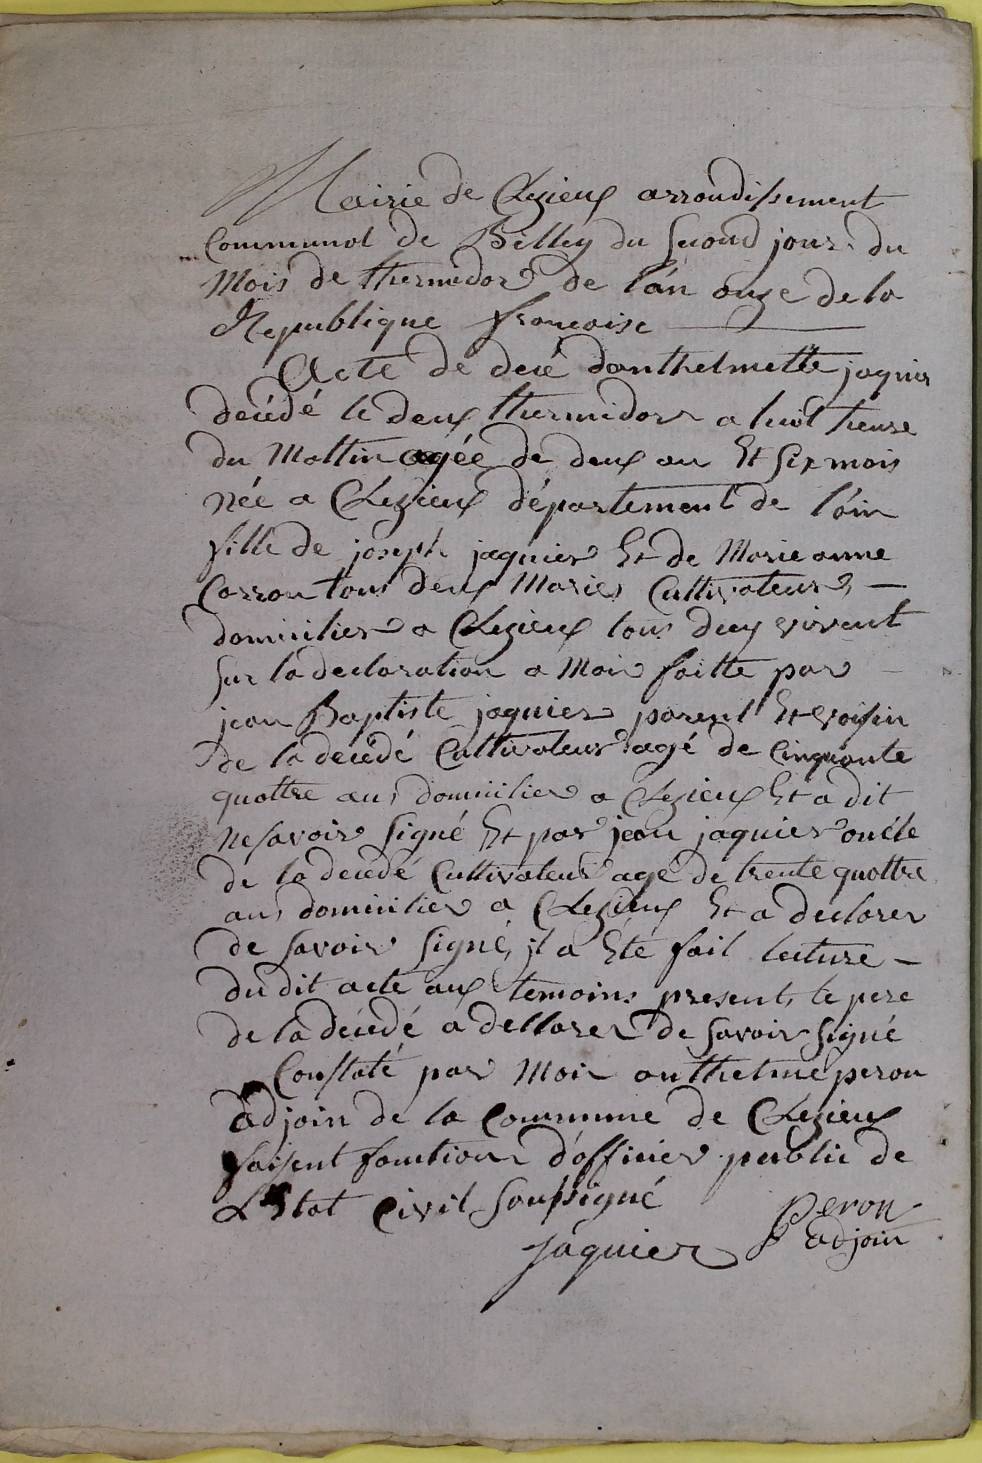 Mairie de Chezieux arrondissement
Communol de Billey du second jour du
Mois de thermidor de l'an onze de la
Republique francoise
Acte de decé d'anthelmette jaquier
decédé le deux thermidor a huit heure
du Mattin agée de deux an Et six mois
née a Chezieux département de l'óin
fille de joseph jaquier Et de Marie anne
Carron tous deux Maries Cultivateurs
domicilier a Chezieux tous deux vivent
sur la declaration a Moir faitte par
jean Baptiste jaquier parent Et voisin
de la decédé Cultivateur agé de Cinquante
quattre ans domicilier a Chezieux Et a dit
ne savoir Signé Et par jean jaquier oncle
de la decédé Cultivateur agé de trente quattre
ans domicilier a Chezieux Et a declarer
de savoir Signé, jl a Eté fait lecture
du dit acte aux temoins present, le pere
de la décedé a dellarer de savoir Signé
Constaté par Moir anthelme peron
adjoin de la Commune de Chezieux
faisent fonction d'officier public de
L'Etat Civil Soussigné
Peron
jáquier adjoin